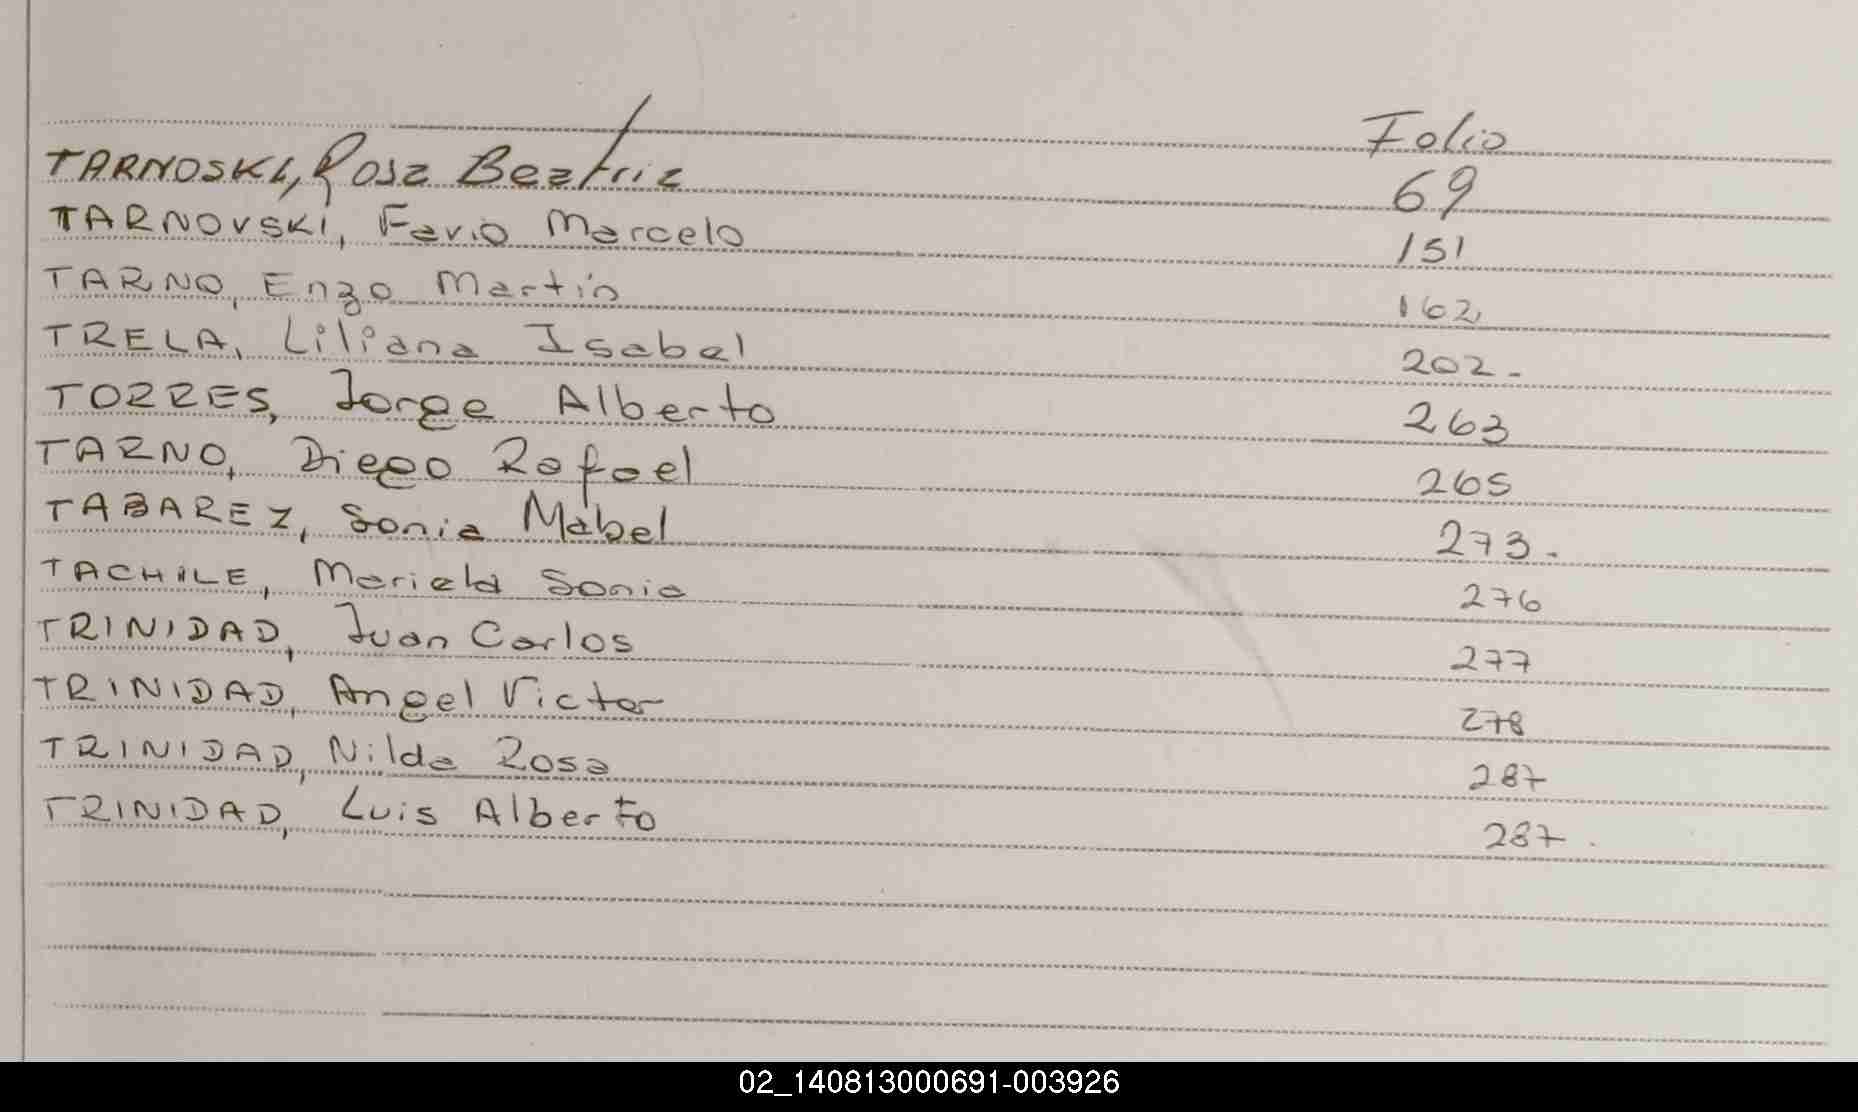 Folio
TARNOSKI, Rosa Beatriz 69
TARNOVSKI, Favio Marcelo 151
TARNO, Enzo Martin 162
TRELA, Liliana Isabel 202.
TORRES, Jorge Alberto 263
TARNO, Diego Rafael 265
TABAREZ, Sonia Mabel 273.
TACHILE, Mariela Sonia 276
TRINIDAD, Juan Carlos 277
TRINIDAD, Angel Victor 278
TRINIDAD, Nilda Rosa 287
TRINIDAD, Luis Alberto 287.
02_140813000691-003926